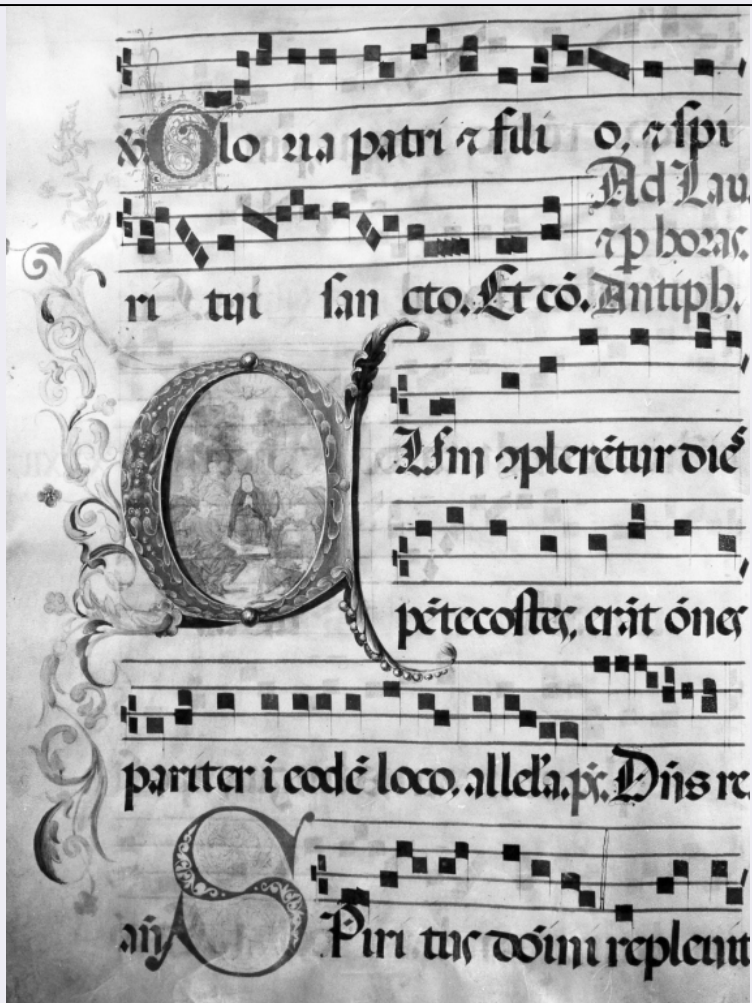 ℣ Glo ria patri ⁊ fili o, ⁊ spi
Ad Lau
⁊ p̱ horas.
ri tui san cto. Et cō. Antiph.
CUm ↄplerētur diēs
pētecostes, erāt ōnes
pariter i eodē loco, allel'a. ps̄. Dn̄s re
an̄ SPiri tus dōini repleuit